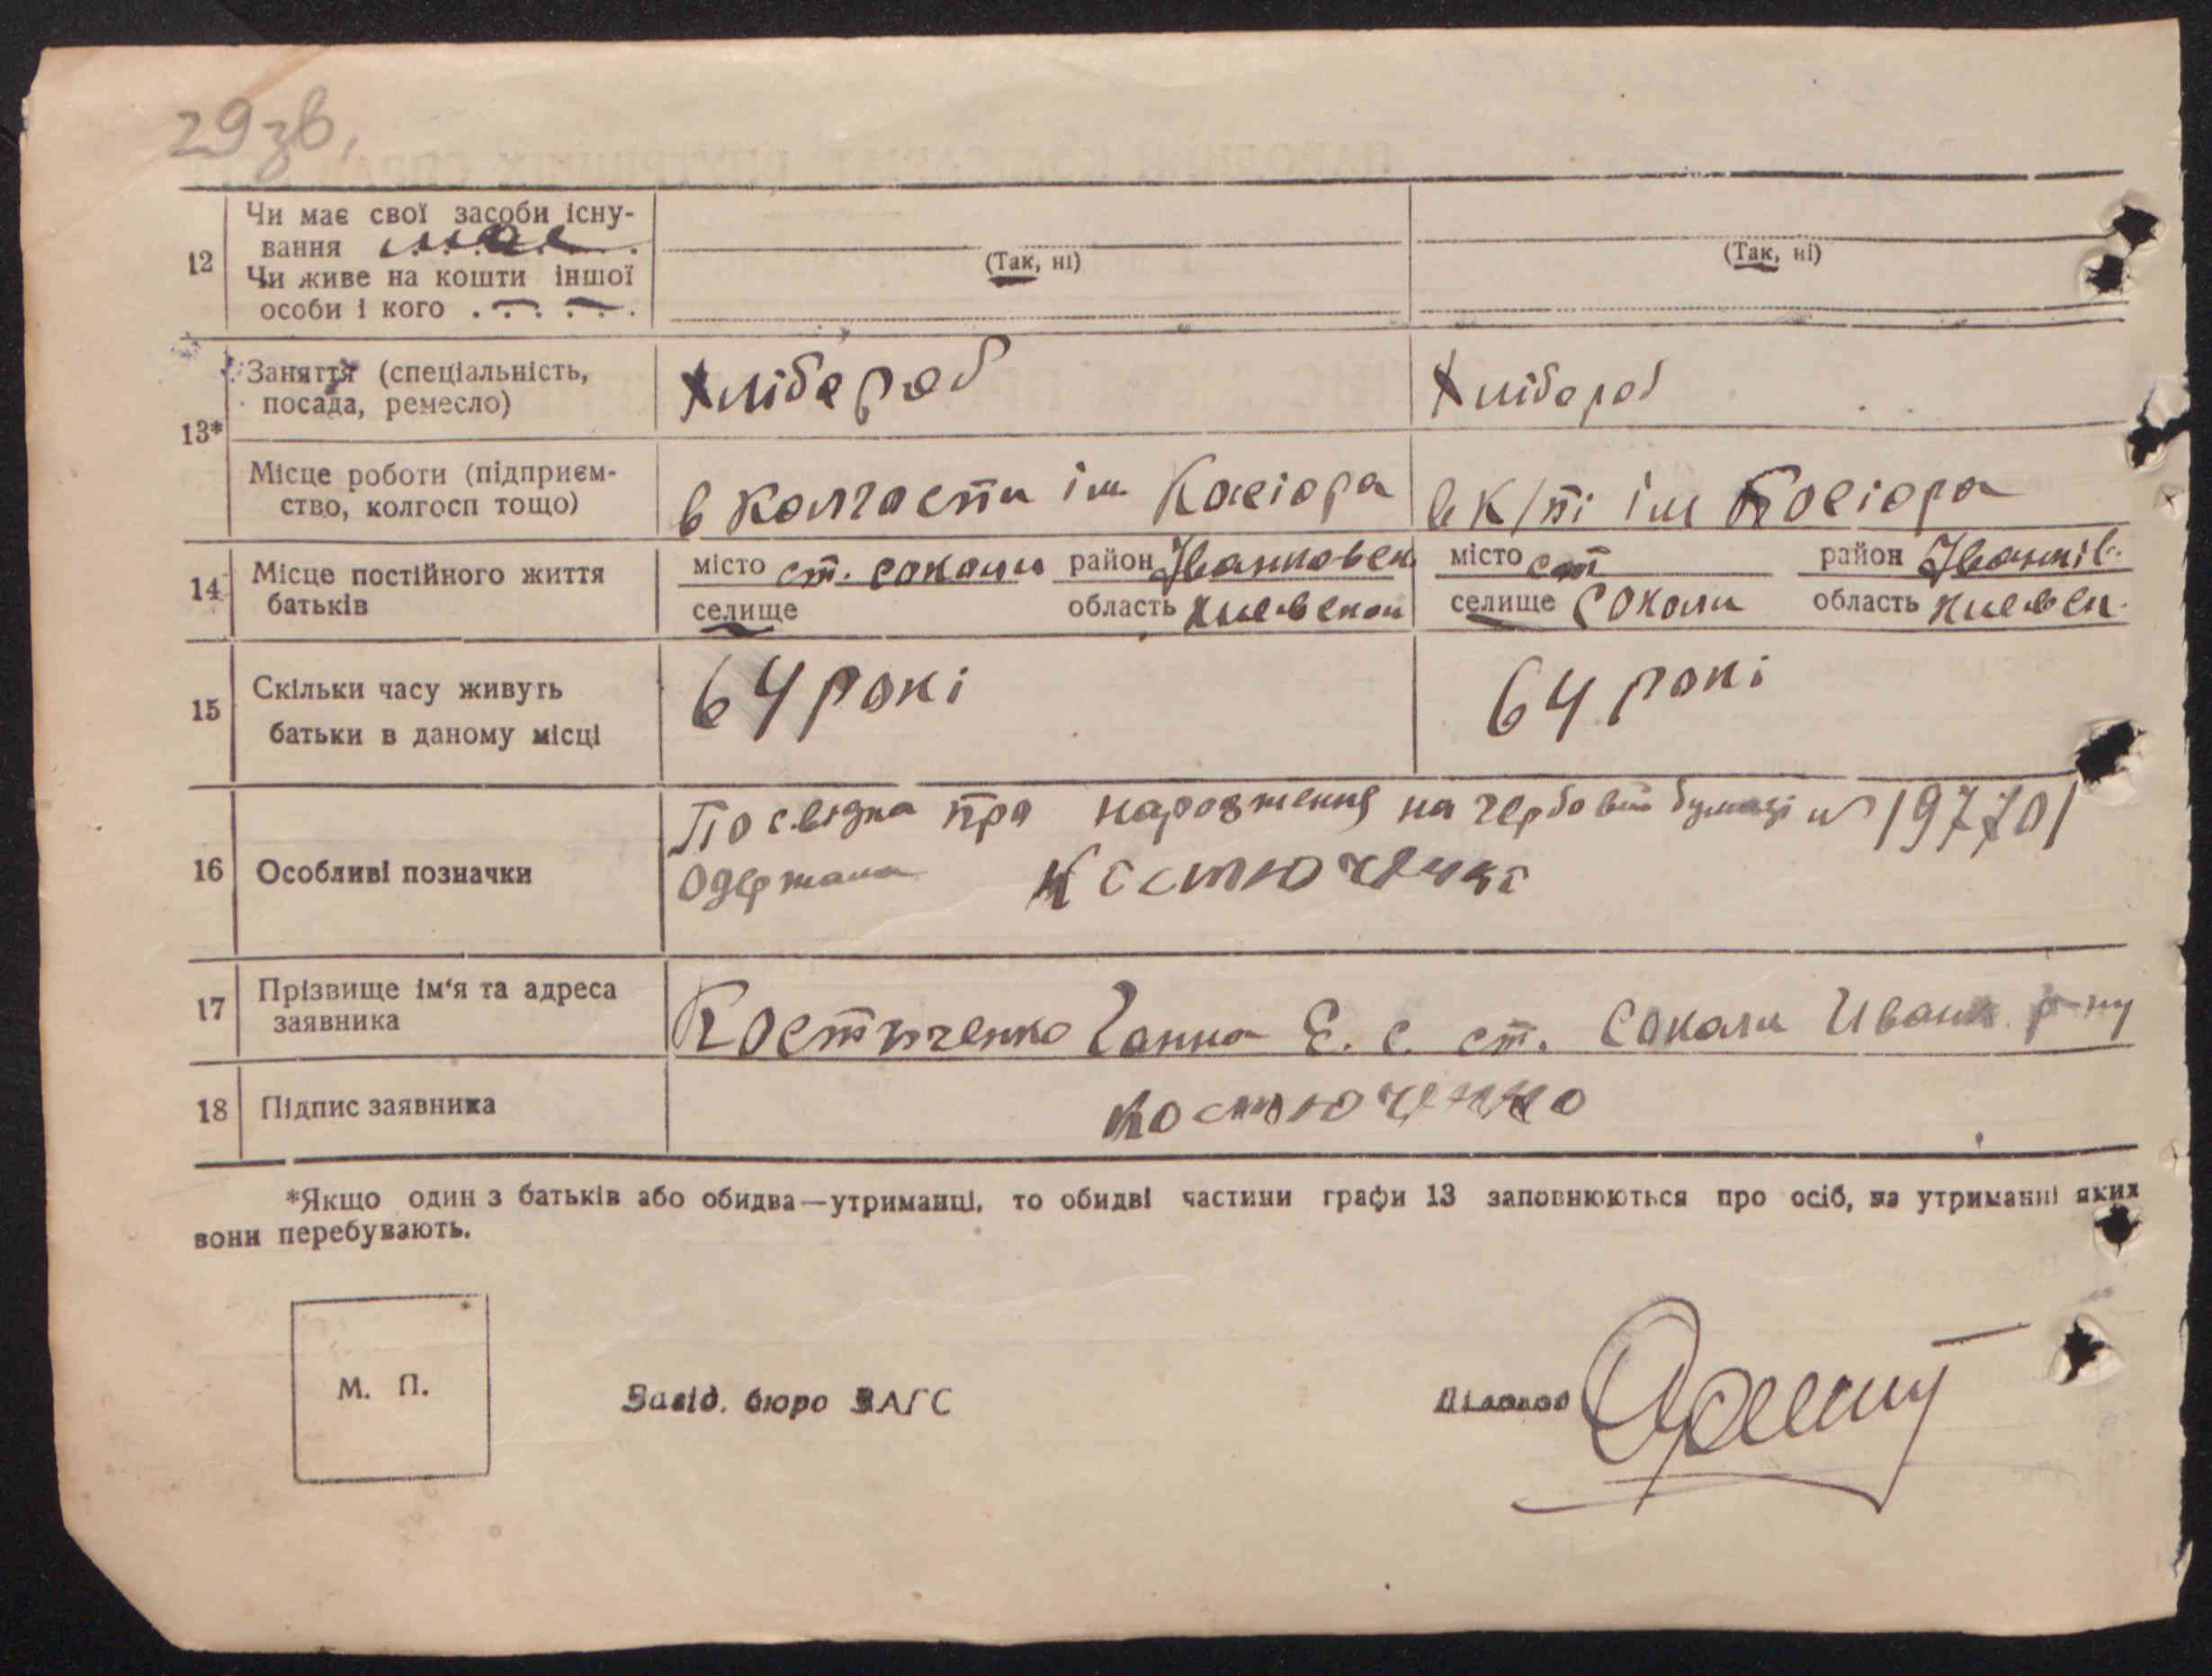 29зв.
12 Чи має свої засоби існу-
вання має
(Так, ні) (Так, ні)
Чи живе на кошти іншої
особи і кого . — . —
13* Заняття (спеціальність, посада, ремесло) Хлібороб Хлібороб
Місце роботи (підприєм-
ство, колгосп тощо) в колгоспи ім Косіора в к/пі ім Косіора
14 Місце постійного життя
батьків
місто ст. соколи район Иванковск місто ст район Іванків.
селище область киевскои селище Соколи область киевск.
15 Скільки часу живуть
батьки в даному місці 64 рокі 64 рокі
16 Особливі позначки
Посвідка про народження на гербовій бумазі № 197701
Одержала Костюченко
17 Прізвище ім'я та адреса
заявника Костюченко Ганна Е. с. ст. Соколи Иванк. р-ну
18 Підпис заявника костюченко
*Якщо один з батьків або обидва—утриманці, то обидві частини графи 13 заповнюються про осіб, на утриманні яких
вони перебувають.
М. П.
Завід. бюро ЗАГС